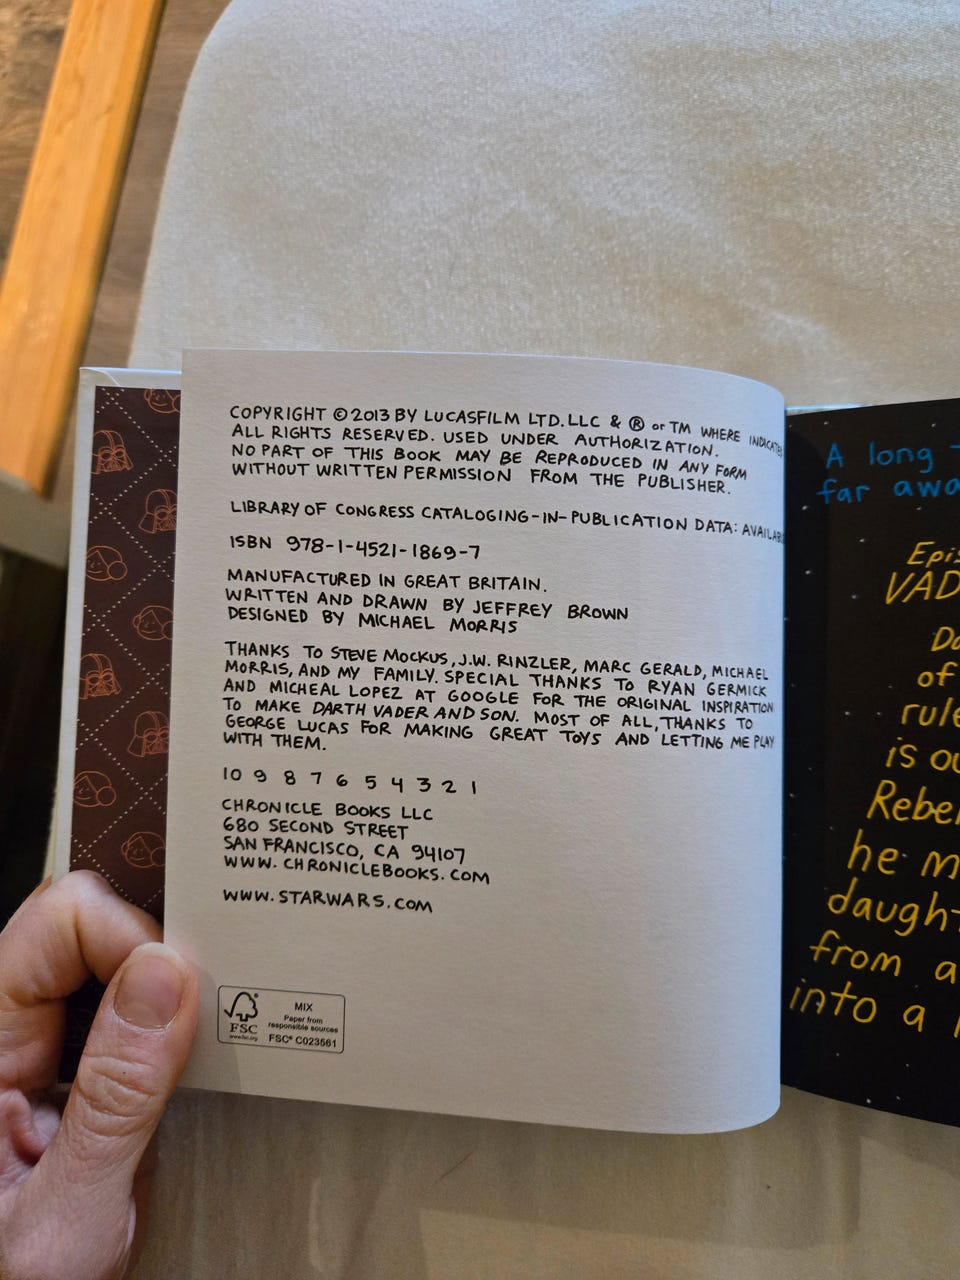 COPYRIGHT © 2013 BY LUCASFILM LTD. LLC & ® or TM WHERE INDICATED
ALL RIGHTS RESERVED. USED UNDER AUTHORIZATION.
NO PART OF THIS BOOK MAY BE REPRODUCED IN ANY FORM
WITHOUT WRITTEN PERMISSION FROM THE PUBLISHER.
LIBRARY OF CONGRESS CATALOGING-IN-PUBLICATION DATA:
ISBN 978-1-4521-1869-7
MANUFACTURED IN GREAT BRITAIN.
WRITTEN AND DRAWN BY JEFFREY BROWN
DESIGNED BY MICHAEL MORRIS
THANKS TO STEVE MOCKUS, J.W. RINZLER, MARC GERALD, MICHAEL
MORRIS, AND MY FAMILY. SPECIAL THANKS TO RYAN GERMICK
AND MICHEAL LOPEZ AT GOOGLE FOR THE ORIGINAL INSPIRATION
TO MAKE DARTH VADER AND SON. MOST OF ALL, THANKS TO
GEORGE LUCAS FOR MAKING GREAT TOYS AND LETTING ME PLAY
WITH THEM.
10 9 8 7 6 5 4 3 2 1
CHRONICLE BOOKS LLC
680 SECOND STREET
SAN FRANCISCO, CA 94107
WWW.CHRONICLEBOOKS.COM
WWW.STARWARS.COM
FSC
www.fsc.org
MIX
Paper from
responsible sources
FSC® C023561
A long
far
of
is
he
from a
into a